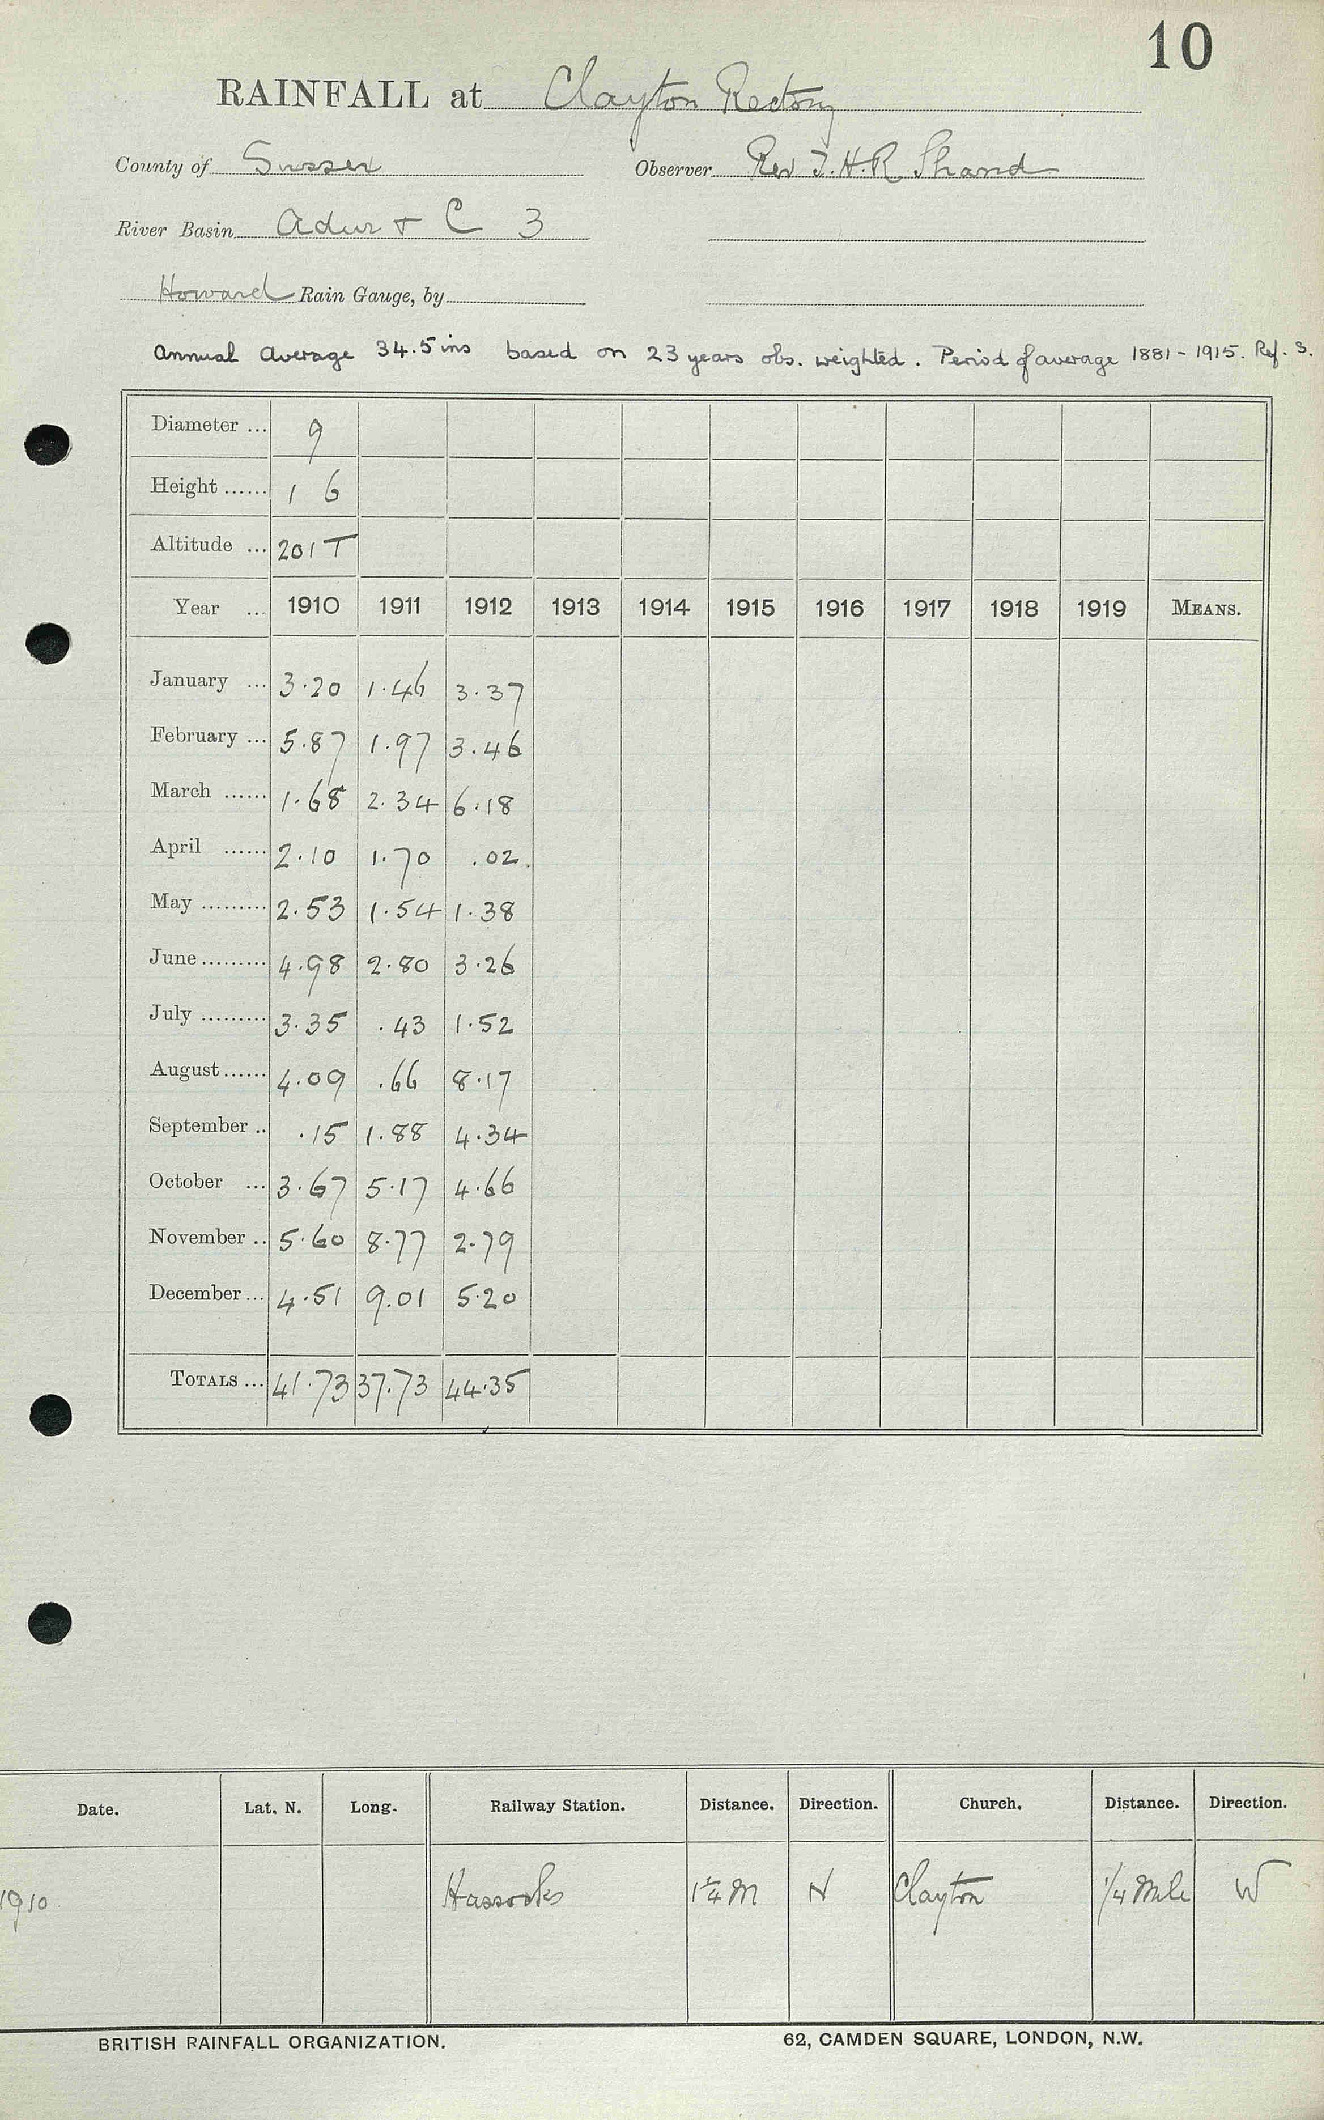 10
RAINFALL at Clayton Rectory
County of Sussex Observer Rev T. H. R Shand
River Basin Adur & C 3
Howard Rain Gauge, by
Annual average 34.5 ins based on 23 years obs. weighted. Period of average 1881 - 1915. Ref. 3.
Diameter ... 9
Height ...... 1 6
Altitude ... 201 T
Year ... 1910 1911 1912 1913 1914 1915 1916 1917 1918 1919 MEANS.
January ... 3.20 1.46 3.37
February ... 5.87 1.97 3.46
March ...... 1.68 2.34 6.18
April ...... 2.10 1.70 .02
May ......... 2.53 1.54 1.38
June ......... 4.98 2.80 3.26
July ......... 3.35 .43 1.52
August ...... 4.09 .66 8.17
September .. .15 1.88 4.34
October ... 3.67 5.17 4.66
November .. 5.60 8.77 2.79
December ... 4.51 9.01 5.20
TOTALS ... 41.73 37.73 44.35
Date. Lat. N. Long. Railway Station. Distance. Direction. Church. Distance. Direction.
1910 Hassocks 1¼ M N Clayton 1/4 Mile W
BRITISH RAINFALL ORGANIZATION. 62, CAMDEN SQUARE, LONDON, N.W.